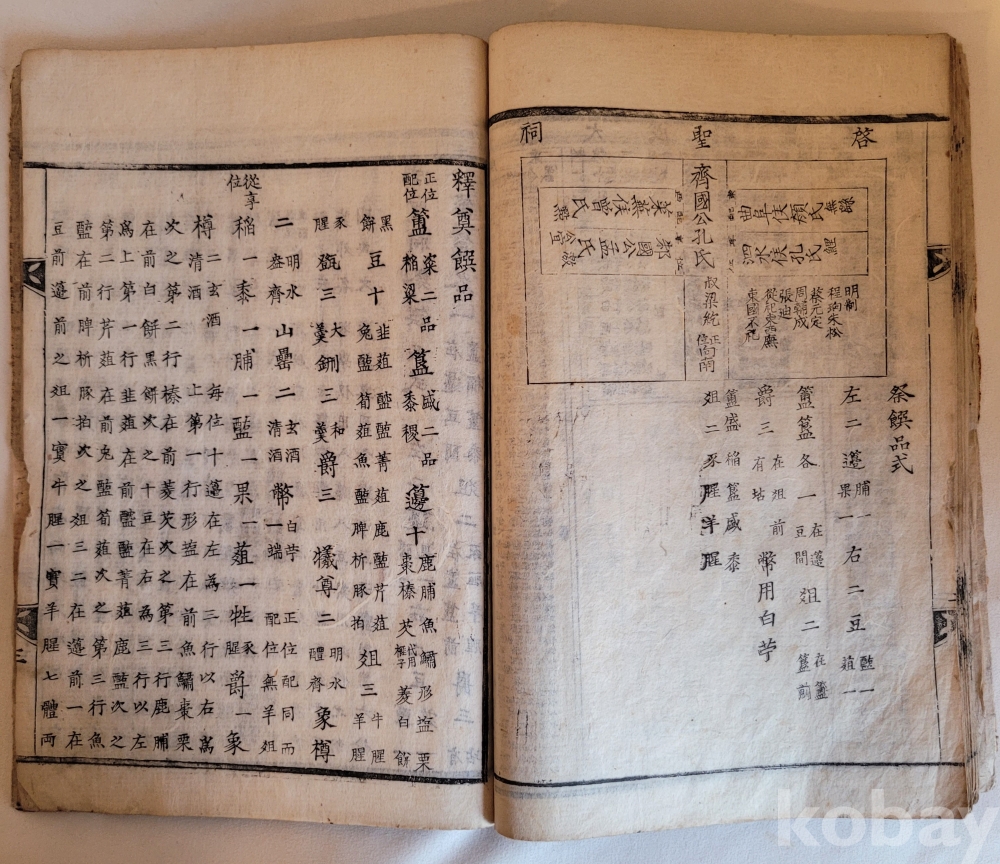 啓聖祠
無繇
曲阜侯顏氏
鯉
泗水侯孔氏
明制
程珦朱松
蔡元定
周輔成
張迪
從祀東西廡
東國不祀
齊國公孔氏 叔梁紇 正位南向
萊蕪侯曾氏 點
邾國公孟氏 激公宜
祭饌品式
左二籩 脯一果一 右二豆 醢一菹一
簠簋各一 在籩豆間 俎二 在簠簋前
爵三 在俎前有坫 幣用白苧
簠盛稻簋盛黍
俎二豕腥羊腥
釋奠饌品
正位配位 簠 粢二品稻粱 簋 盛二品黍稷 籩十 鹿脯魚鱐形塩栗棗榛芡代用椒子菱白餅
黑餅 豆十 韭菹醓醢菁菹鹿醢芹菹兔醢筍菹魚醢脾析豚拍 俎三 牛腥羊腥
豕腥 㽅三 大羹 鉶三 和羹 爵三 犧尊二 明水醴齊 象樽
二 明水盎齊 山罍二 玄酒清酒 幣 白苧一端 正位配同而配位無羊俎
從享位 稻一黍一脯一醢一果一菹一牲 豕腥 爵一象
樽 二玄酒清酒 每位十籩在左為三行以右為上第一行形塩在前魚鱐棗栗
次之第二行榛在前菱芡次之第三行鹿脯
在前白餅黑餅次之十豆在右為三行以左
為上第一行韭菹在前醓醢菁菹鹿醢次之
第二行芹菹在前兔醢筍菹次之第三行魚
醢在前脾析豚拍次之俎三二在籩前一在
豆前籩前之俎一實牛腥一實羊腥七體兩
kobay